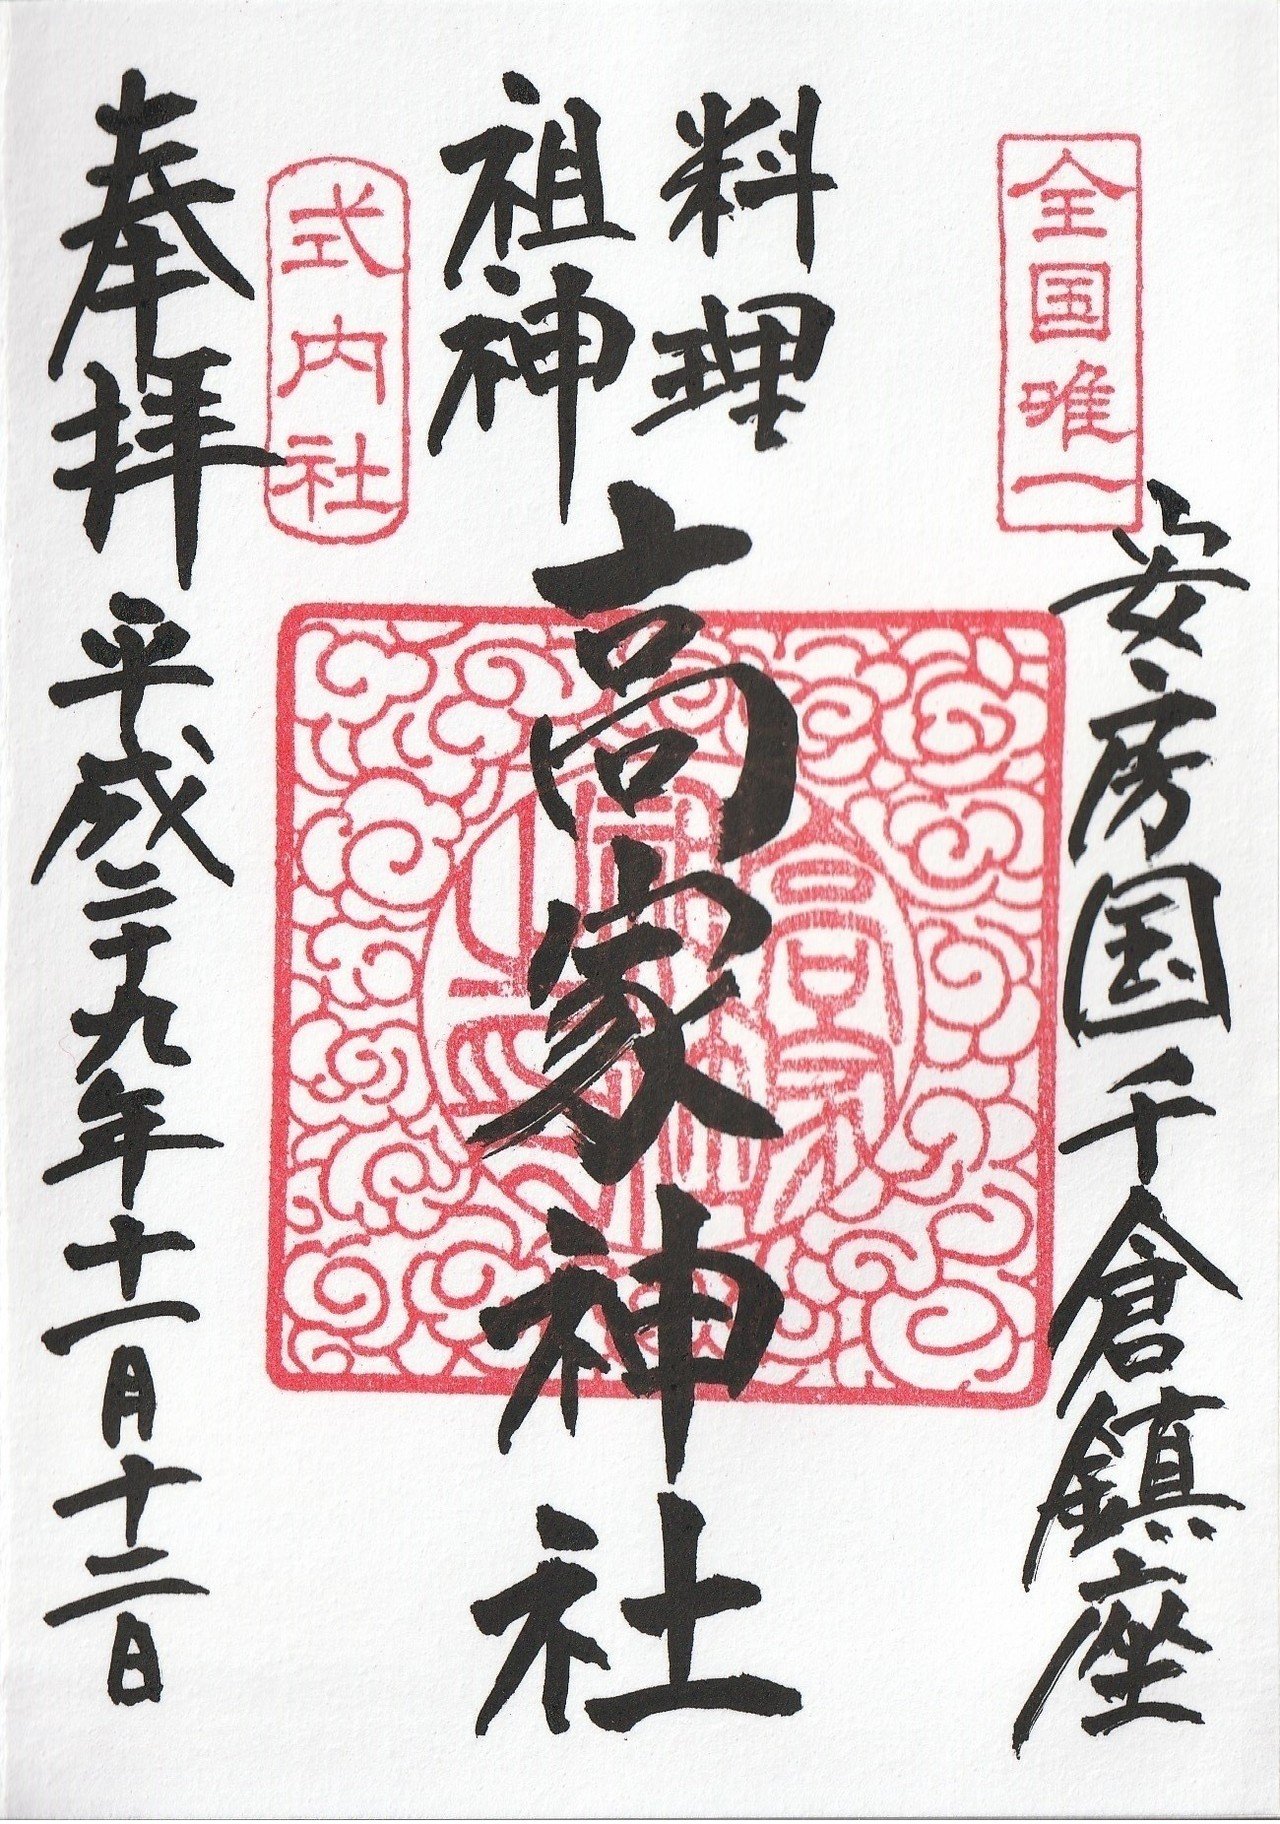 全国唯一
安房国千倉鎮座
料理
祖神
高家神社
式内社
奉拝
平成二十九年十一月十二日